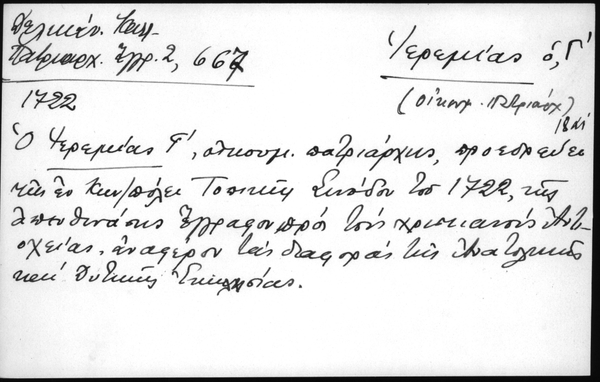 Δελικάν. Καλ-
Πατριαρχ. Ἔγγρ. 2, 667
Ἱερεμίας ὁ, Γ´
1722
(οἰκουμ. πατριάρχ)
18 αἰ
Ὁ Ἱερεμίας Γ´, οἰκουμ. πατριάρχης, προεδρεύει
τῆς ἐν Κων/πόλει Τοπικῆς Συνόδου τοῦ 1722, τῆς
ἀπευθυνάσης ἔγγραφον πρός τούς χριστιανούς Ἀντι-
οχείας, ἀναφέρον τάς διαφοράς τῆς Ἀνατολικῆς
καί Δυτικῆς Ἐκκλησίας.